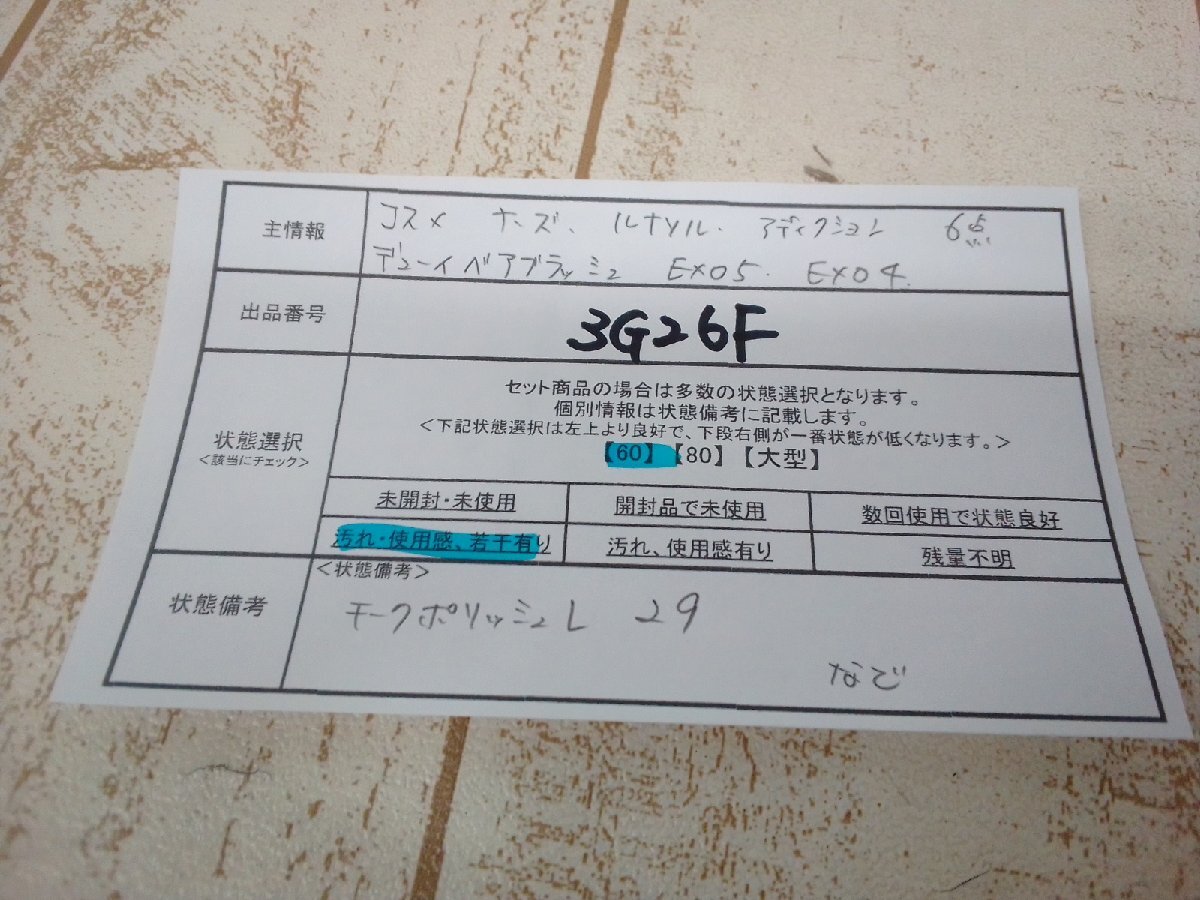 主情報
コスメ ナーズ、ルナソル、アディクション 6点
デューイ ベアブラッシュ EX05. EX04.
出品番号
3G26F
状態選択
<該当にチェック>
セット商品の場合は多数の状態選択となります。
個別情報は状態備考に記載します。
<下記状態選択は左上より良好で、下段右側が一番状態が低くなります。>
【60】【80】【大型】
未開封・未使用 開封品で未使用 数回使用で状態良好
汚れ・使用感、若干有り 汚れ、使用感有り 残量不明
状態備考
<状態備考>
チークポリッシュ 29
など